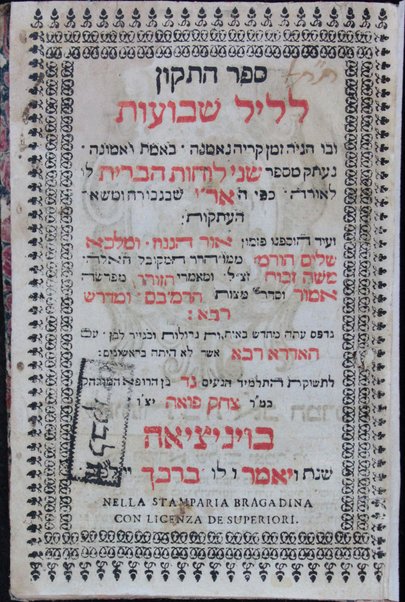 ספר התקון
לליל שבועות
ובו הגיה זמן קריה נאמנה · באמת ואמונה ·
נעתק מספר שני לוחות הברית לו
לאורה · כפי ה אר״י שבגבורה ומשא
העתקות :
ועוד הוספנו פזמון אור הגנוז · ומלכא
שלים הורמי ממו׳ הר״ר המקובל האלהי
משה זכות זצ״ל · ומאמרי הזוהר מפרשה
אמור וסדר מצות הרמב״ם ומדרש
רבא :
נדפס עתה מחדש באותיות גדולות ובנייר לבן · עם
האדרא רבא אשר לא היתה בראשונים ·
לתשוקת התלמיד הנעים גד בן הרופא המובהק
כמ״ר צדק פואה יצ״ו
בויניציאה
שנת ויאמר לו ברכך
NELLA STAMPARIA BRAGADINA
CON LICENZA DE SUPERIORI.